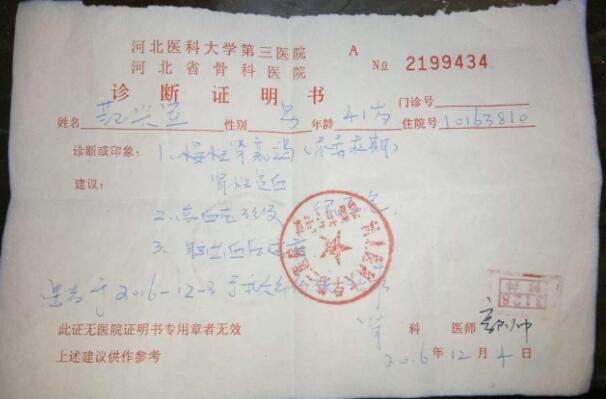 河北医科大学第三医院 A
河北省骨科医院 № 2199434
诊断证明书 门诊号
姓名 性别 男 年龄 41岁 住院号 10163810
诊断或印象: 1. 慢性肾衰竭(尿毒症期)
建议: 肾性贫血
2. 高血压3级
3. 脑出血后遗症
患者于2016-12-3于我
此证无医院证明书专用章者无效 肾 科 医师
上述建议供作参考 2016年12月4日
3128